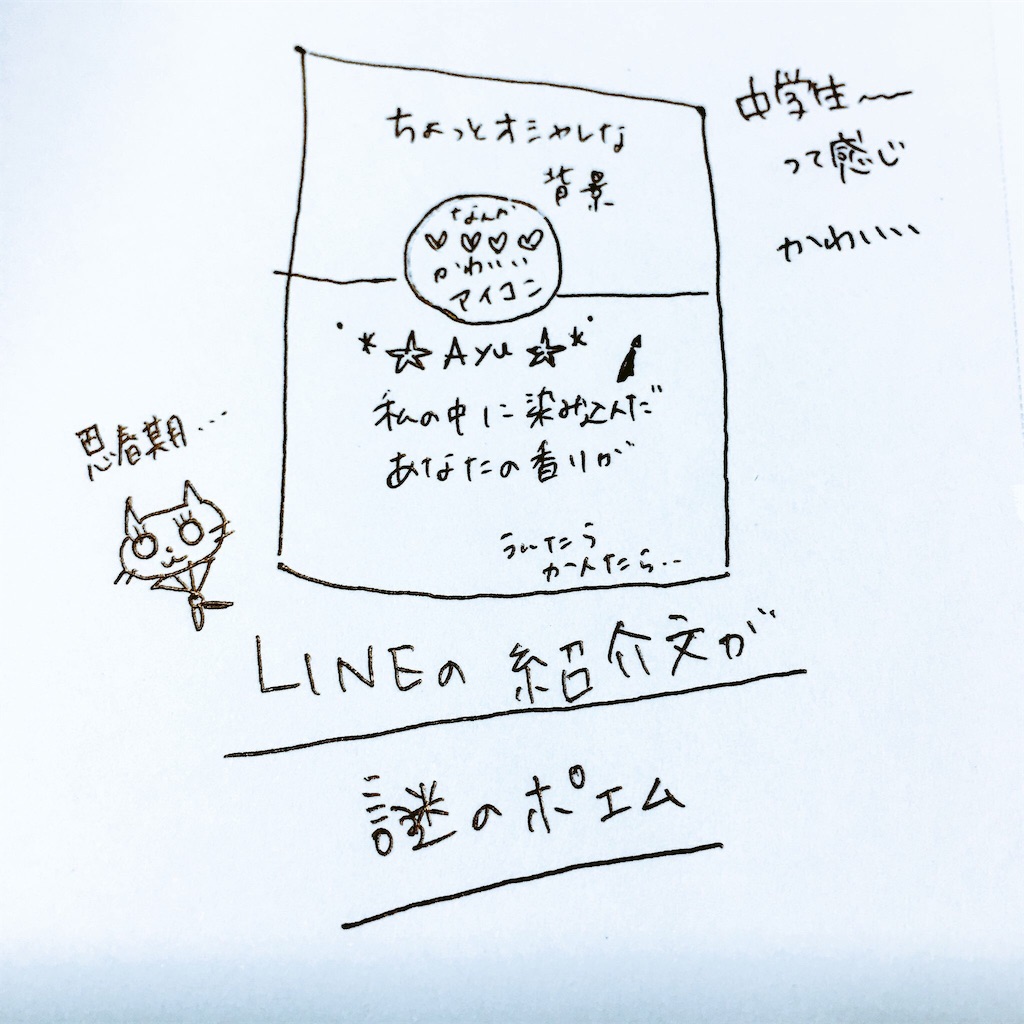 ちょっとオシャレな
背景
なんか
♡♡♡♡
かわいい
アイコン
*☆Ayu☆*
私の中に染み込んだ
あなたの香りが
うんたら
かんたら...
中学生〜
って感じ
かわいい
思春期...
LINEの紹介文が
謎のポエム